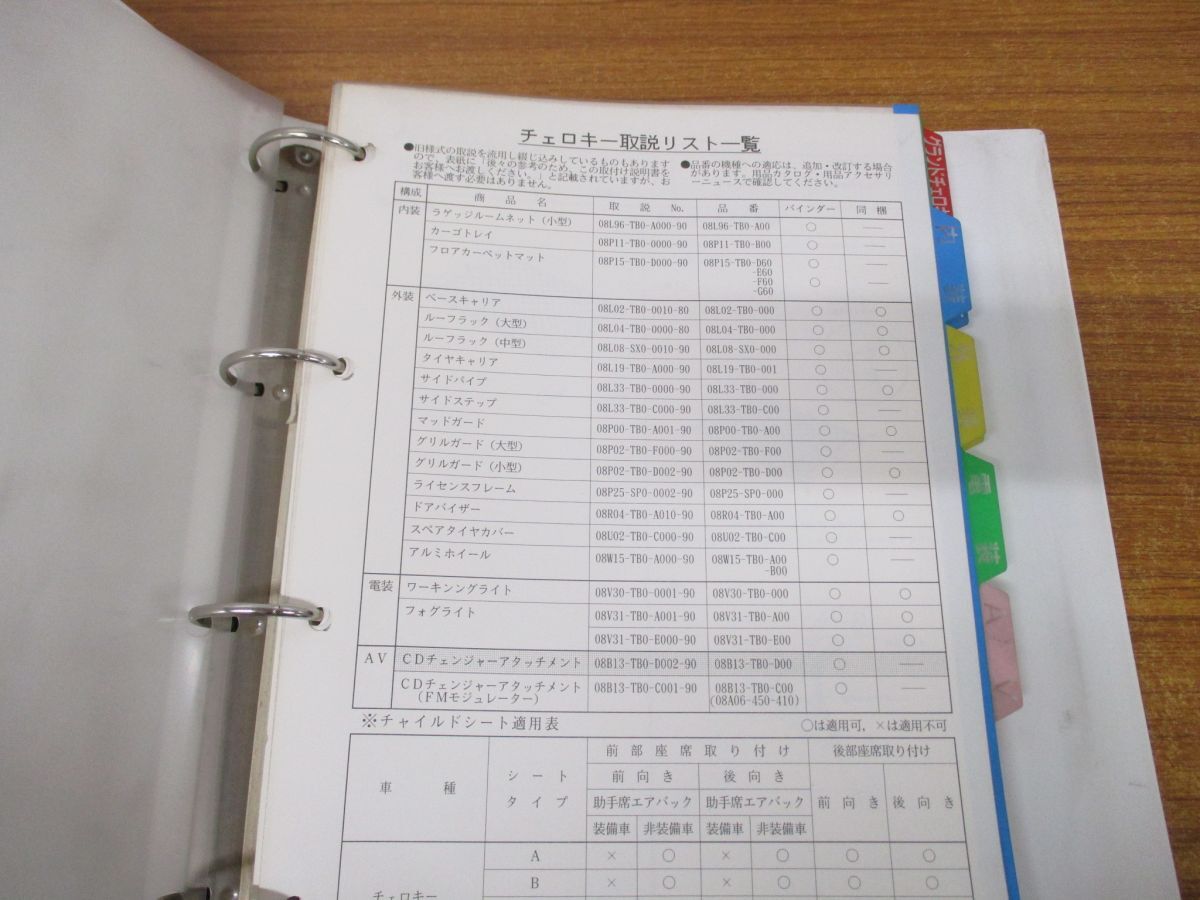 チェロキー取説リスト一覧
●旧様式の取説を流用し綴じ込みしているものもあります
ので、表紙に「後々の参考のため、この取付け説明書を
お客様へお渡しください。」と記載されていますが、お
客様へ渡す必要はありません。
●品番の機種への適応は、追加・改訂する場合
があります。用品カタログ・用品アクセサリ
ーニュースで確認してください。
構成 商品名 取説No. 品番 バインダー 同梱
内装 ラゲッジルームネット（小型） 08L96-TB0-A000-90 08L96-TB0-A00 ○ ──
カーゴトレイ 08P11-TB0-0000-90 08P11-TB0-B00 ○ ──
フロアカーペットマット 08P15-TB0-D000-90 08P15-TB0-D60 ○ ──
-E60
-F60 ○ ──
-G60
外装 ベースキャリア 08L02-TB0-0010-80 08L02-TB0-000 ○ ○
ルーフラック（大型） 08L04-TB0-0000-80 08L04-TB0-000 ○ ○
ルーフラック（中型） 08L08-SX0-0010-90 08L08-SX0-000 ○ ○
タイヤキャリア 08L19-TB0-A000-90 08L19-TB0-001 ○ ──
サイドパイプ 08L33-TB0-0000-90 08L33-TB0-000 ○ ○
サイドステップ 08L33-TB0-C000-90 08L33-TB0-C00 ○ ──
マッドガード 08P00-TB0-A001-90 08P00-TB0-A00 ○ ○
グリルガード（大型） 08P02-TB0-F000-90 08P02-TB0-F00 ○ ──
グリルガード（小型） 08P02-TB0-D002-90 08P02-TB0-D00 ○ ○
ライセンスフレーム 08P25-SP0-0002-90 08P25-SP0-000 ○ ──
ドアバイザー 08R04-TB0-A010-90 08R04-TB0-A00 ○ ○
スペアタイヤカバー 08U02-TB0-C000-90 08U02-TB0-C00 ○ ──
アルミホイール 08W15-TB0-A000-90 08W15-TB0-A00 ○ ──
-B00
電装 ワーキンングライト 08V30-TB0-0001-90 08V30-TB0-000 ○ ○
フォグライト 08V31-TB0-A001-90 08V31-TB0-A00 ○ ○
08V31-TB0-E000-90 08V31-TB0-E00 ○ ○
AV CDチェンジャーアタッチメント 08B13-TB0-D002-90 08B13-TB0-D00 ○ ──
CDチェンジャーアタッチメント 08B13-TB0-C001-90 08B13-TB0-C00 ○ ──
（FMモジュレーター） (08A06-450-410)
※チャイルドシート適用表 ○は適用可，×は適用不可
車種 シートタイプ 前部座席取り付け 後部座席取り付け
前向き 後向き
助手席エアバック 助手席エアバック 前向き 後向き
装備車 非装備車 装備車 非装備車
A × ○ × ○ ○ ○
B × ○ × ○ ○ ○
チェロキー
グランドチェロキ
内
電
装
AV